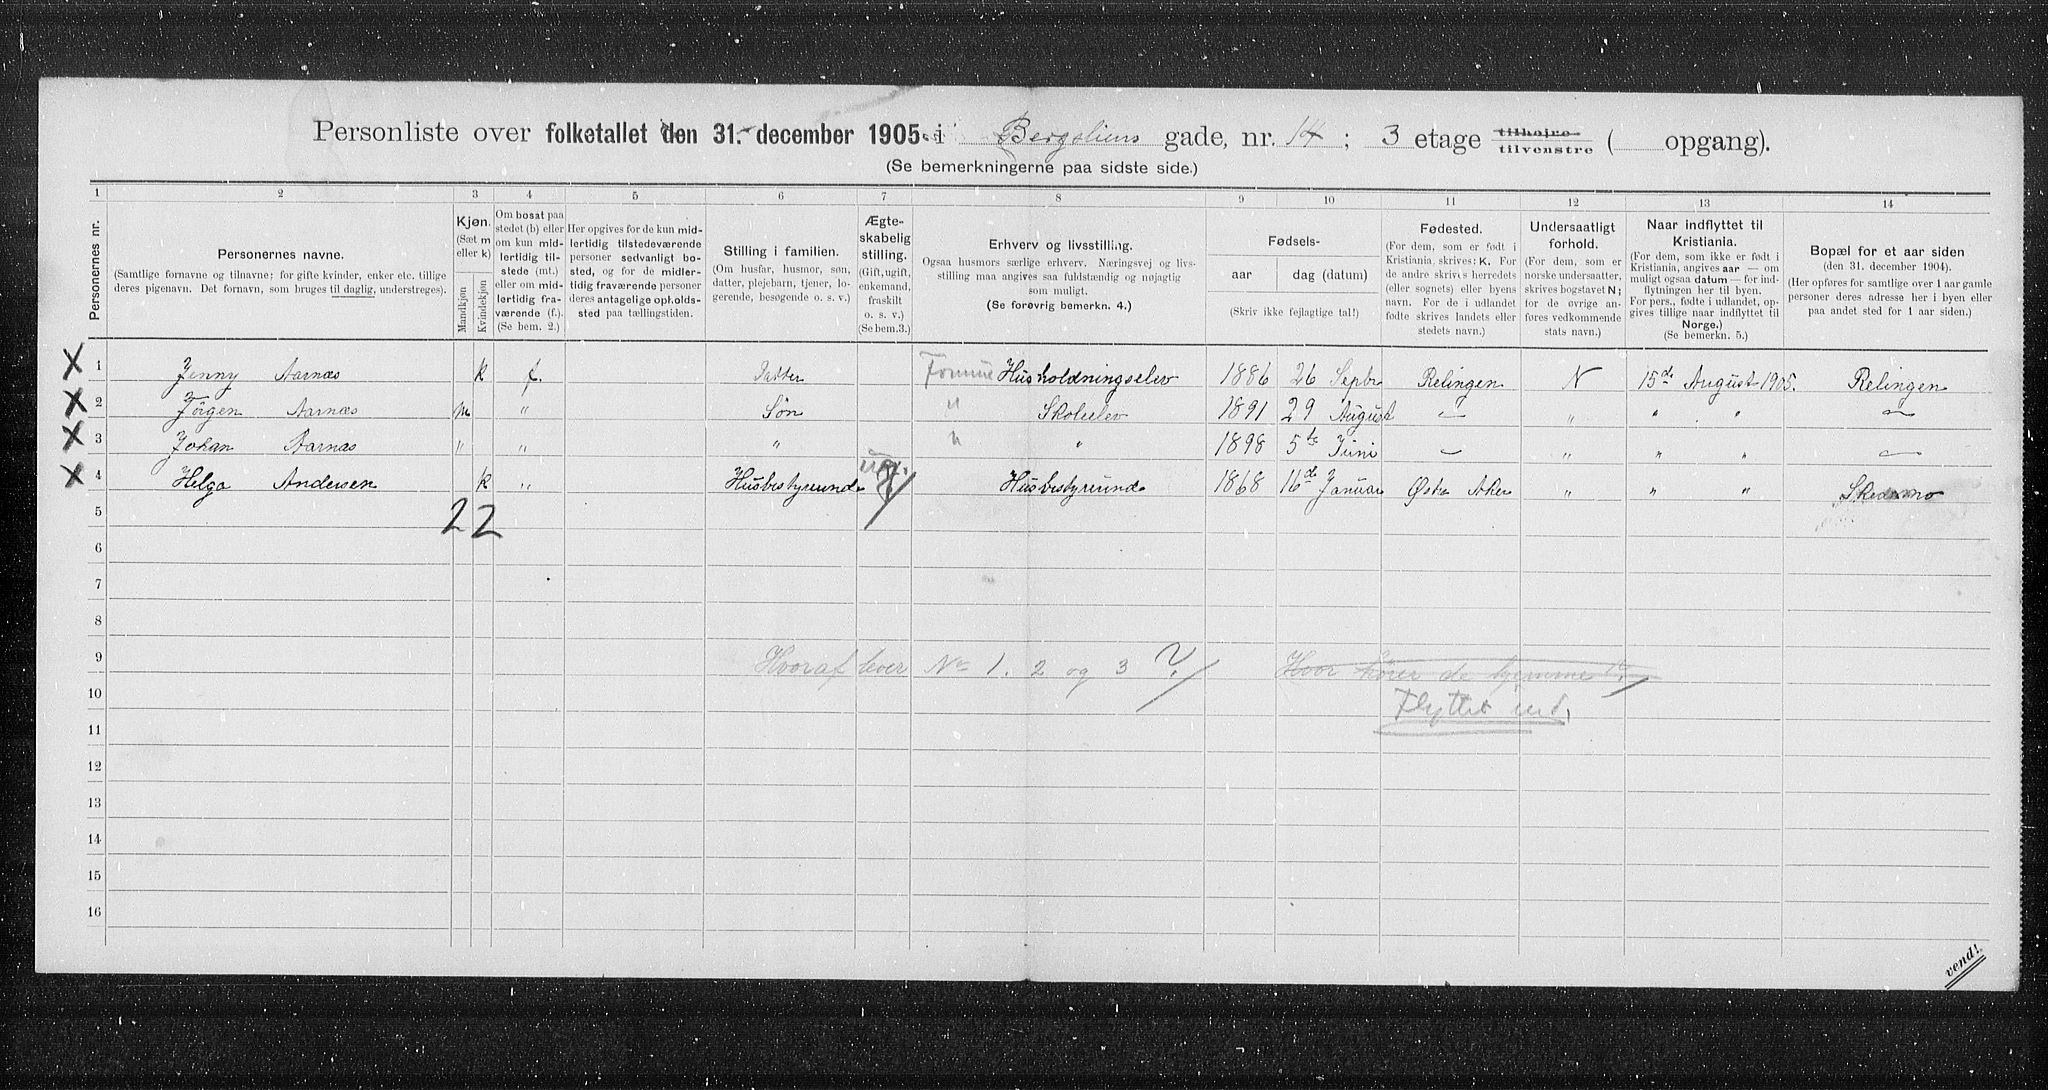 Personliste over folketallet den 31. december 1905 i Bergsliens gade, nr. 14 ; 3 etage tilhøire tilvenstre ( opgang).
(Se bemerkningerne paa sidste side.)
1 2 3 4 5 6 7 8 9 10 11 12 13 14
Personernes nr.
Personernes navne.
(Samtlige fornavne og tilnavne; for gifte kvinder, enker etc. tillige
deres pigenavn. Det fornavn, som bruges til daglig, understreges).
Kjøn.
(Sæt m
eller k)
Mandkjøn
Kvindekjøn
Om bosat paa
stedet (b) eller
om kun mid-
lertidig tilstede (mt.)
eller om mid-
lertidig fra-
værende (f.).
(Se bem. 2.)
Her opgives for de kun mid-
lertidig tilstedeværende
personer sedvanlig bo-
sted, og for de midler-
tidig fraværende personer
deres antagelige opholds-
sted paa tællingstiden.
Stilling i familien.
(Om husfar, husmor, søn,
datter, plejebarn, tjener, lo-
gerende, besøgende o. s. v.)
Ægte-
skabelig
stilling.
(Gift, ugift,
enkemand,
fraskilt
o. s. v.)
(Se bem. 3.)
Erhverv og livsstilling.
Ogsaa husmors særlige erhverv. Næringsvej og livs-
stilling maa angives saa fuldstændig og nøjagtig
som muligt.
(Se forøvrig bemerkn. 4.)
Fødsels-
aar dag (datum)
(Skriv ikke fejlagtige tal!)
Fødested.
(For dem, som er født i
Kristiania, skrives: K. For
de andre skrives herredets
(eller sognets) eller byens
navn. For de i udlandet
fødte skrives landets eller
stedets navn.)
Undersaatligt
forhold.
(For dem, som er
norske undersaatter,
skrives bogstavet N;
for de øvrige an-
føres vedkommende
stats navn.)
Naar indflyttet til
Kristiania.
(For dem, som ikke er født i
Kristiania, angives aar — om
muligt ogsaa datum — for ind-
flytningen her til byen.
For pers., fødte i udlandet, op-
gives tillige naar indflyttet til
Norge.)
(Se bemerkn. 5.)
Bopæl for et aar siden
(den 31. december 1904).
(Her opføres for samtlige over 1 aar gamle
personer deres adresse her i byen eller
paa andet sted for 1 aar siden.)
X 1 Jenny Aarnæs k f. Datter Husholdningselev 1886 26 Septbr Relingen N 15de August 1905. Relingen
X 2 Jörgen Aarnæs m " Søn " Skoleelev 1891 29 August — " " " —
X 3 Johan Aarnæs " " " " " 1898 5te Juni — " " " —
X 4 Helga Andersen k " Husbestyrerinde ug. Husbestyrerinde 1868 16de Januar Østre Aker " " " Skedsmo
5 2 2
6
7
8
9 Hvoraf lever No 1. 2 og 3 ? Hvor hører de hjemme?
10 Flyttet ind.
11
12
13
14
15
16
vend!